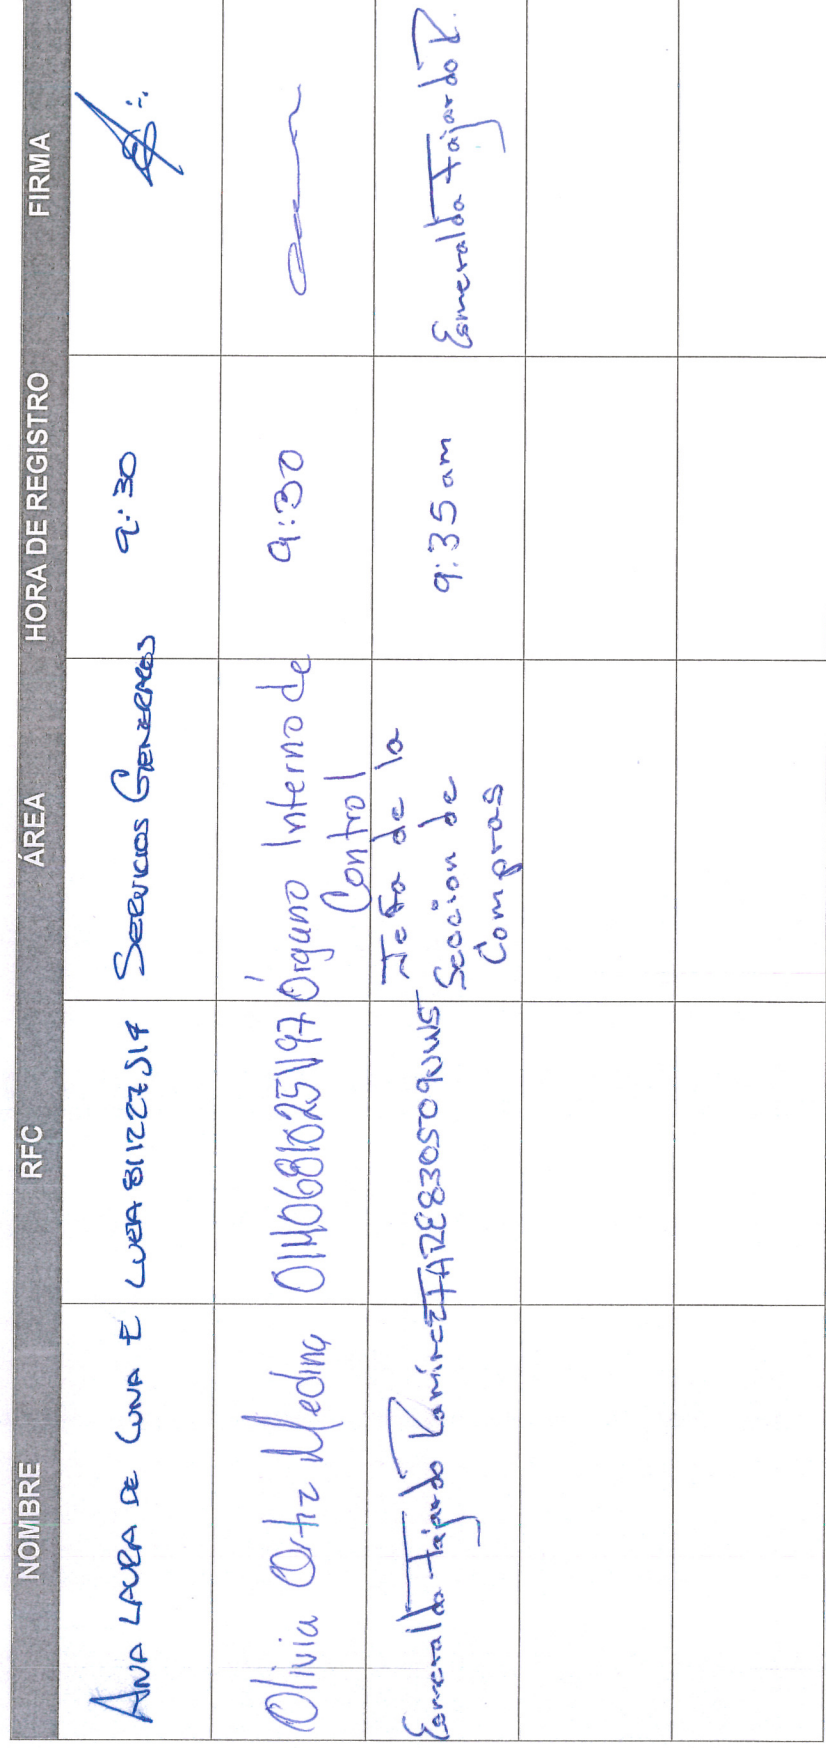 NOMBRE RFC ÁREA HORA DE REGISTRO FIRMA
ANA LAURA DE LUNA E LUEA811227S14 SERVICIOS GENERALES 9:30
Olivia Ortiz Medina OIMO681025V97 Órgano Interno de
Control 9:30
Esmeralda Fajardo Ramírez FARE830509UW5 Jefa de la
Sección de
Compras 9:35 am Esmeralda Fajardo R.